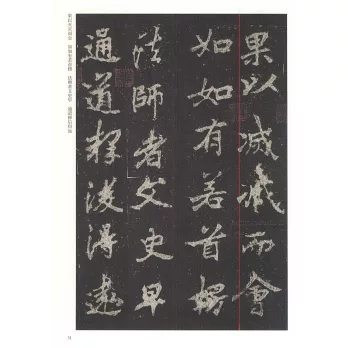 果以滅滅而會
如如有若首楞
法師者文史早
通道釋後得遠